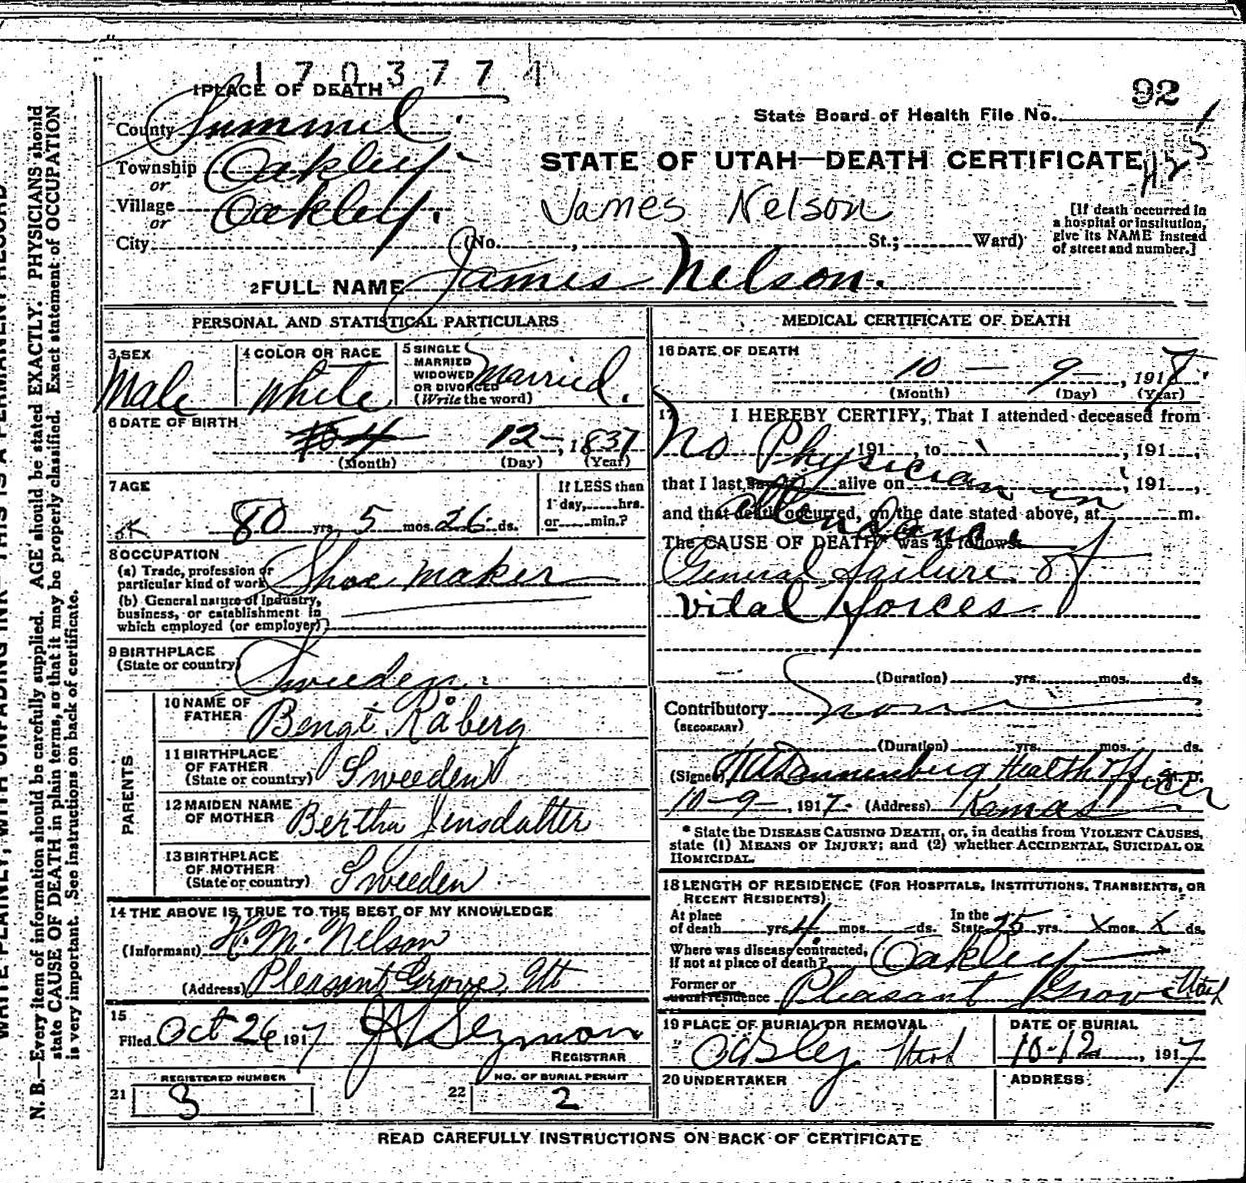 1 7 0 3 7 7 1
92
1 PLACE OF DEATH
State Board of Health File No.
County Summit
Township Oakley
or
Village Oakley.
or
City
STATE OF UTAH—DEATH CERTIFICATE
James Nelson
(No. , St.; Ward)
[If death occurred in
a hospital or institution,
give its NAME instead
of street and number.]
2 FULL NAME James Nelson.
PERSONAL AND STATISTICAL PARTICULARS
3 SEX
Male
4 COLOR OR RACE
White
5 SINGLE
MARRIED
WIDOWED
OR DIVORCED
(Write the word)
Married.
6 DATE OF BIRTH
12 , 1837
(Month) (Day) (Year)
7 AGE
80 yrs. 5 mos. 26 ds.
If LESS than
1 day, hrs.
or min.?
8 OCCUPATION
(a) Trade, profession or
particular kind of work Shoe maker
(b) General nature of industry,
business, or establishment in
which employed (or employer)
9 BIRTHPLACE
(State or country)
Sweeden.
PARENTS
10 NAME OF
FATHER Bengt Råberg
11 BIRTHPLACE
OF FATHER
(State or country) Sweeden
12 MAIDEN NAME
OF MOTHER Bertha Jensdatter
13 BIRTHPLACE
OF MOTHER
(State or country) Sweeden
14 THE ABOVE IS TRUE TO THE BEST OF MY KNOWLEDGE
(Informant) H. M. Nelson
(Address) Pleasant Grove, Ut
15
Filed Oct 26 1917
REGISTRAR
REGISTERED NUMBER
21 3
NO. OF BURIAL PERMIT
22 2
MEDICAL CERTIFICATE OF DEATH
16 DATE OF DEATH
10 — 9 — , 191
(Month) (Day) (Year)
17 I HEREBY CERTIFY, That I attended deceased from
No Physician in attendance
191 , to , 191 ,
that I last saw alive on , 191 ,
and that death occurred, on the date stated above, at m.
The CAUSE OF DEATH was as follows:
General failure of
vital forces
(Duration) yrs. mos. ds.
Contributory
(SECONDARY)
(Duration) yrs. mos. ds.
(Signed) Health Officer
10-9-, 1917. (Address) Kamas
* State the DISEASE CAUSING DEATH, or, in deaths from VIOLENT CAUSES,
state (1) MEANS OF INJURY; and (2) whether ACCIDENTAL, SUICIDAL OR
HOMICIDAL.
18 LENGTH OF RESIDENCE (FOR HOSPITALS, INSTITUTIONS, TRANSIENTS, OR
RECENT RESIDENTS)
At place
of death yrs. 4 mos. ds.
In the
State yrs. x mos. x ds.
Where was disease contracted,
If not at place of death? Oakley
Former or
usual residence Pleasant Grove Utah
19 PLACE OF BURIAL OR REMOVAL
Oakley Utah
DATE OF BURIAL
10-12 , 1917
20 UNDERTAKER
ADDRESS
READ CAREFULLY INSTRUCTIONS ON BACK OF CERTIFICATE
WRITE PLAINLY, WITH UNFADING INK—THIS IS A PERMANENT RECORD
N. B.—Every item of information should be carefully supplied. AGE should be stated EXACTLY. PHYSICIANS should
state CAUSE OF DEATH in plain terms, so that it may be properly classified. Exact statement of OCCUPATION
is very important. See instructions on back of certificate.